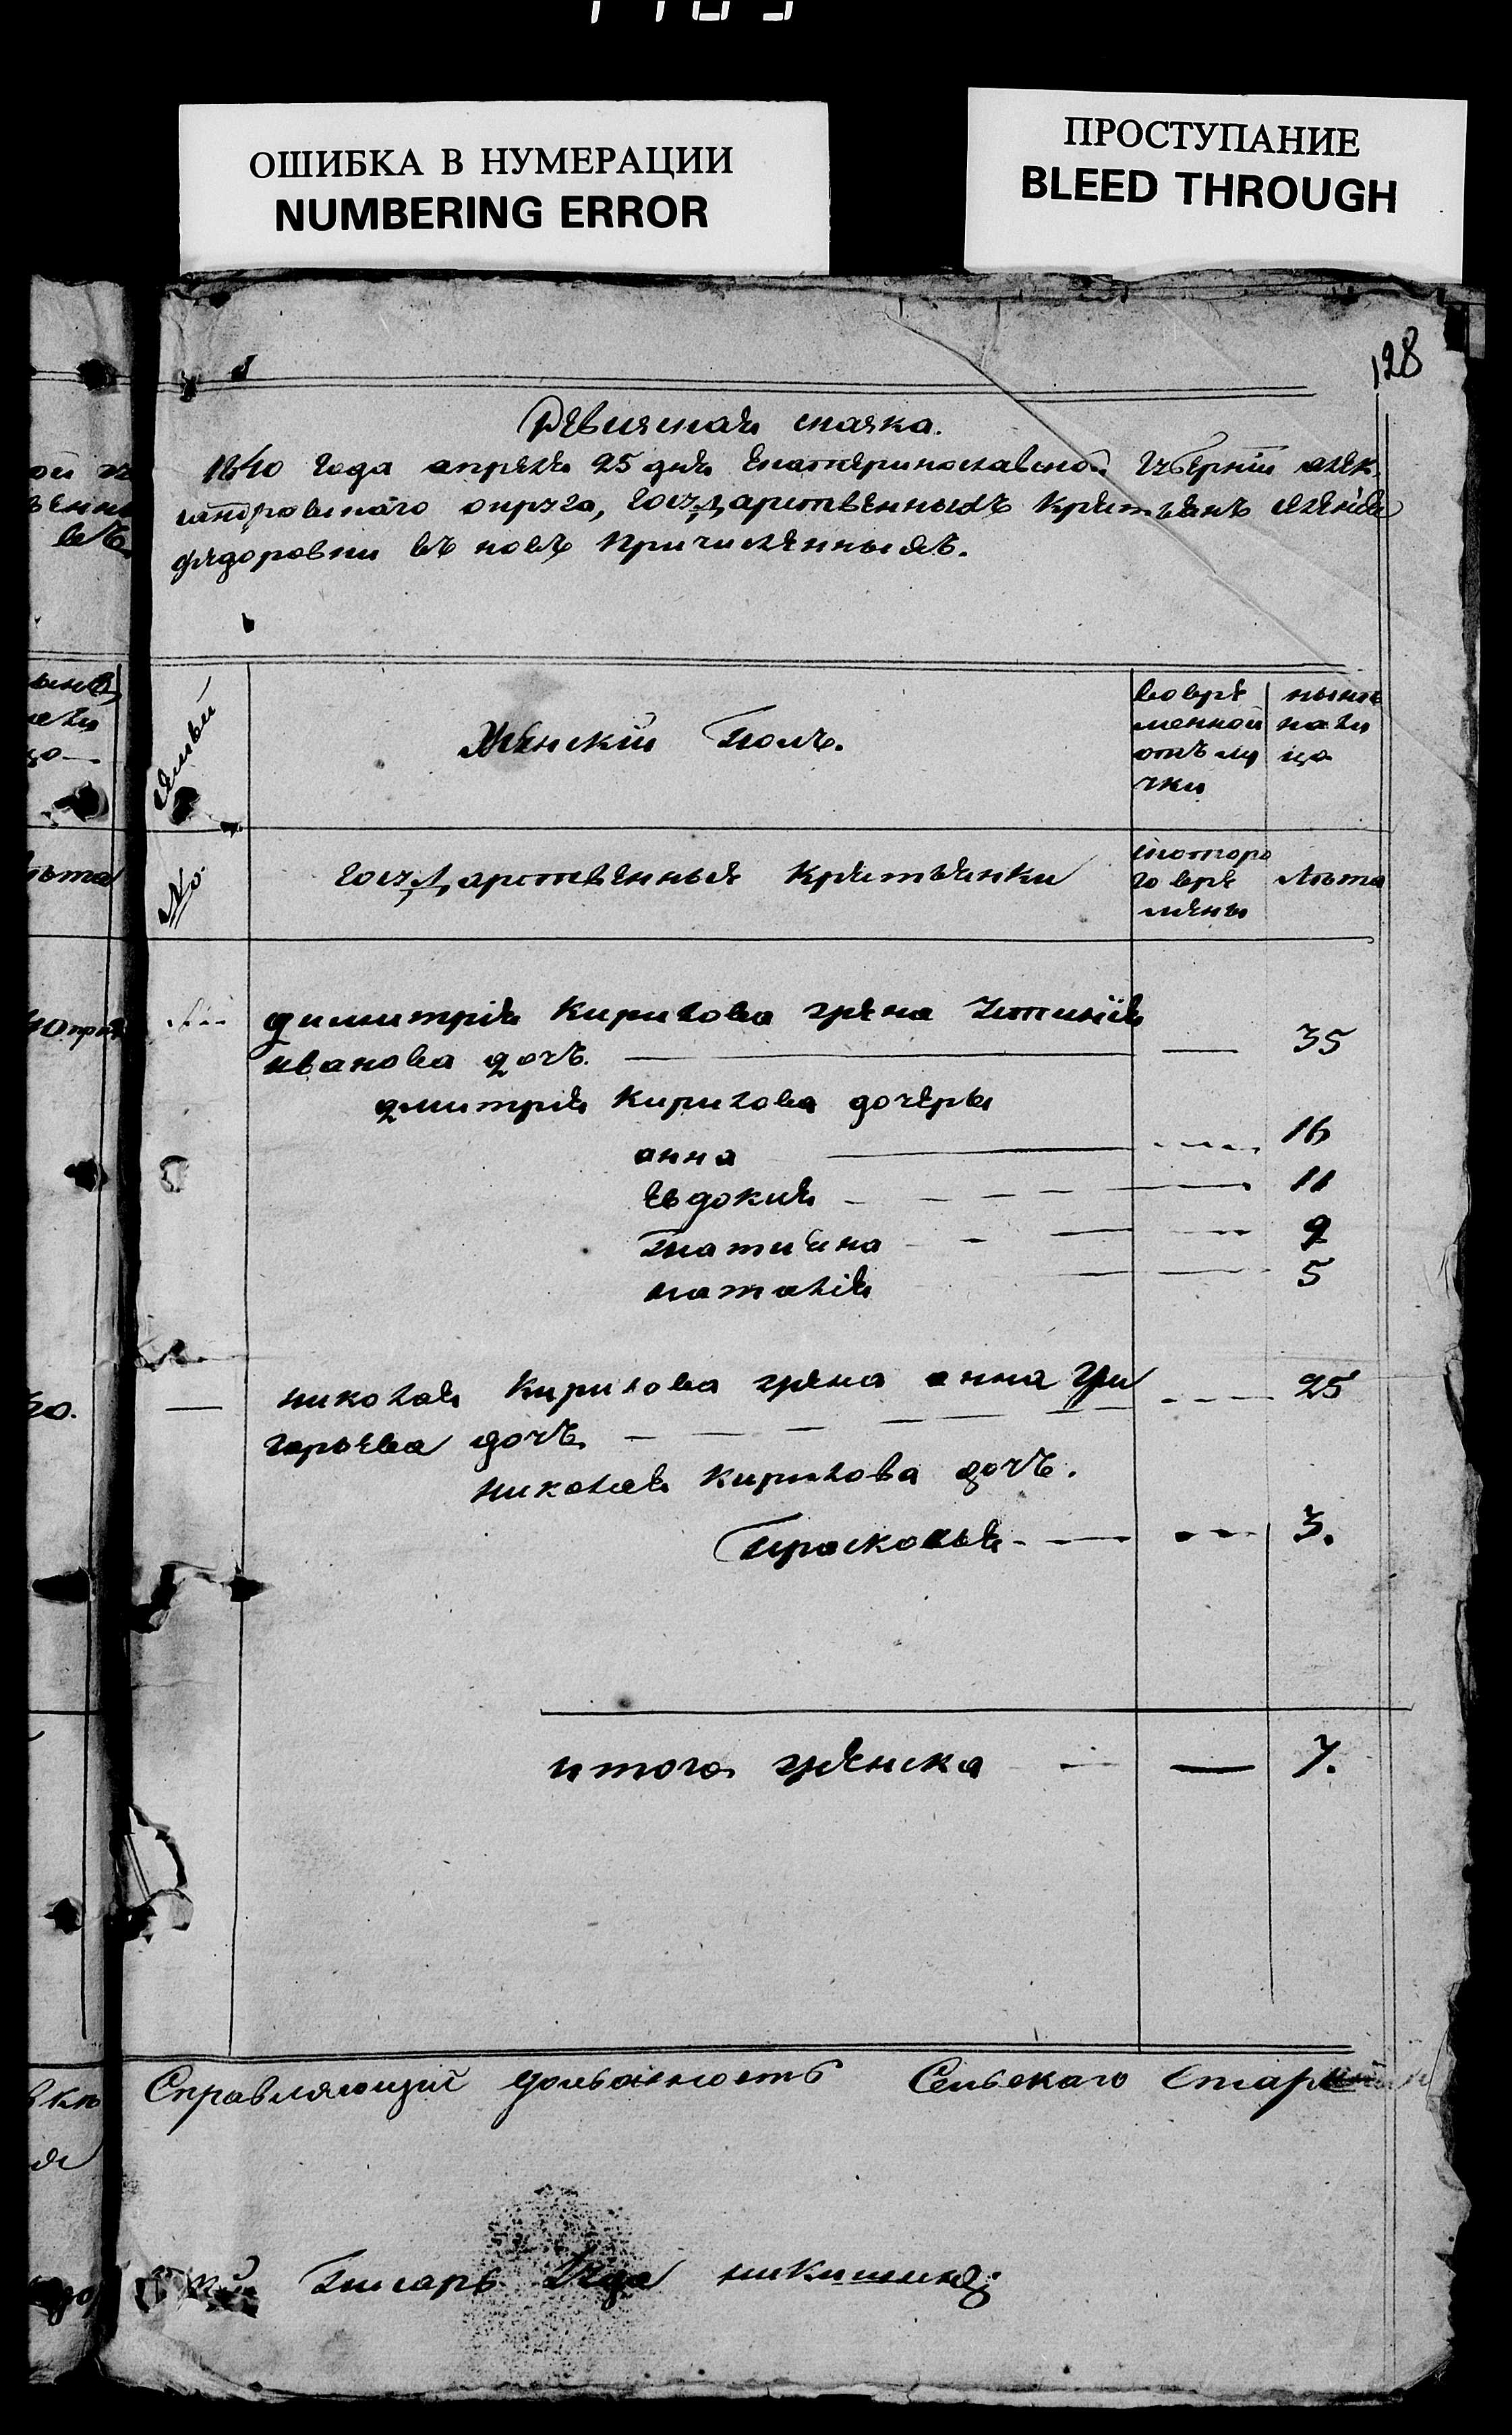 ОШИБКА В НУМЕРАЦИИ
NUMBERING ERROR
ПРОСТУПАНИЕ
BLEED THROUGH
128
Ревизская сказка.
1840 года апреля 25 дня Екатеринославской Губернiи алек
сандровскаго округа, государственныхъ крестьянъ селенiя
федоровки въ новь причисленныхъ.
Семьи
Женскiй Полъ.
во вре
менной
отълу
чки
ныне
на ли
цо
№
государственныя крестьянки
скоторо
го вре
мяны
лѣта
димитрiя Кирилова жена Устинiя
иванова дочъ. 35
дмитрiя Кирилова дочеры
анна 16
Евдокия 11
Татияна 9
наталiя 5
николая Кирилова жена анна гри
горьева дочъ 25
николая Кирилова дочъ.
Просковья 3.
итого женска 7.
Справляющий должность Сельскаго
Писарь никишинъ